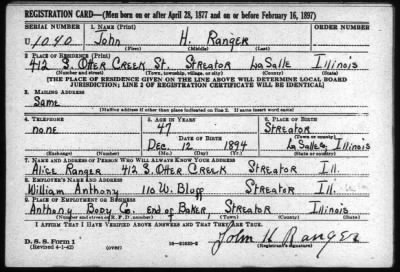 REGISTRATION CARD—(Men born on or after April 28, 1877 and on or before February 16, 1897)
SERIAL NUMBER 1. NAME (Print) ORDER NUMBER
U 1040 John H. Ranger
(First) (Middle) (Last)
2. PLACE OF RESIDENCE (Print)
412 S. Otter Creek St. Streator LaSalle Illinois
(Number and street) (Town, township, village, or city) (County) (State)
[THE PLACE OF RESIDENCE GIVEN ON THE LINE ABOVE WILL DETERMINE LOCAL BOARD
JURISDICTION; LINE 2 OF REGISTRATION CERTIFICATE WILL BE IDENTICAL]
3. MAILING ADDRESS
Same
[Mailing address if other than place indicated on line 2. If same insert word same]
4. TELEPHONE 5. AGE IN YEARS 6. PLACE OF BIRTH
none 47 Streator
DATE OF BIRTH (Town or county)
Dec. 12 1894 LaSalle, Illinois
(Exchange) (Number) (Mo.) (Day) (Yr.) (State or country)
7. NAME AND ADDRESS OF PERSON WHO WILL ALWAYS KNOW YOUR ADDRESS
Alice Ranger 412 S. Otter Creek Streator Ill.
8. EMPLOYER'S NAME AND ADDRESS
William Anthony 110 W. Bluff Streator Ill.
9. PLACE OF EMPLOYMENT OR BUSINESS
Anthony Body Co. end of Baker Streator Illinois
(Number and street or R. F. D. number) (Town) (County) (State)
I AFFIRM THAT I HAVE VERIFIED ABOVE ANSWERS AND THAT THEY ARE TRUE.
D. S. S. Form 1
(Revised 4-1-42) (over) John H Ranger
(Registrant's signature)